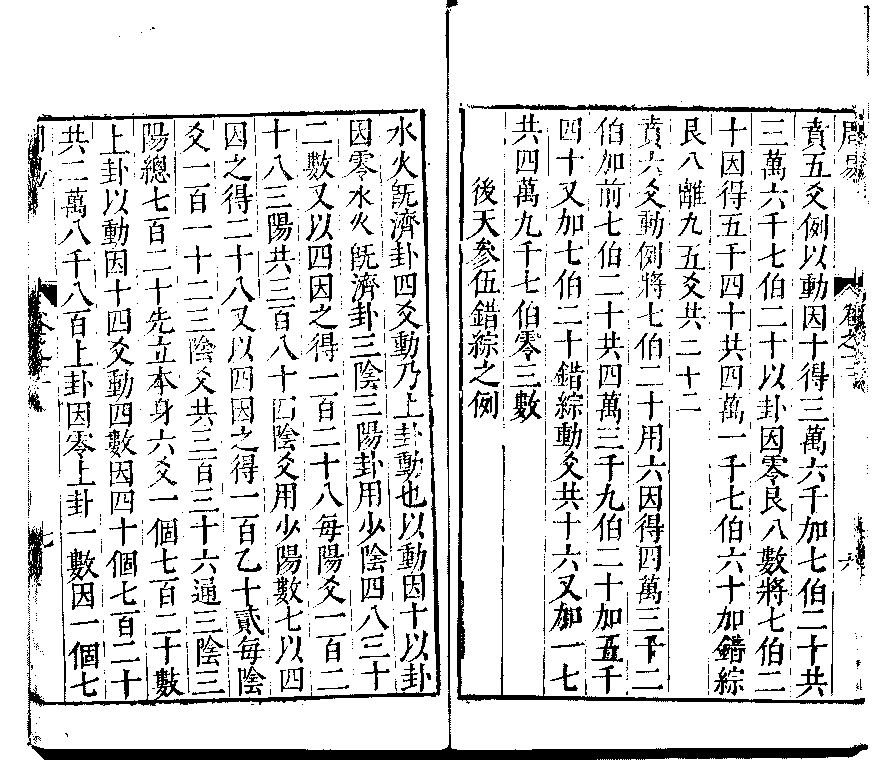 賁五爻例以動因十得三萬六千加七伯二十共
三萬六千七伯二十以卦因零艮八數將七伯二
十因得五千四十共四萬一千七伯六十加錯綜
艮八離九五爻共二十二
賁六爻動例將七伯二十用六因得四萬三千二
伯加前七伯二十共四萬三千九伯二十加五千
四十又加七伯二十錯綜動爻共十六又加一七
共四萬九千七伯零三數
後天參伍錯綜之例
水火旣濟卦四爻動乃上卦動也以動因十以卦
因零水火旣濟卦三陰三陽卦用少陰四八三十
二數又以四因之得一百二十八每陽爻一百二
十八三陽共三百八十四陰爻用少陽數七以四
因之得二十八又以四因之得一百乙十貳每陰
爻一百一十二三陰爻共三百三十六通三陰三
陽總七百二十先立本身六爻一個七百二十數
上卦以動因十四爻動四數因四十個七百二十
共二萬八千八百上卦因零上卦一數因一個七
七